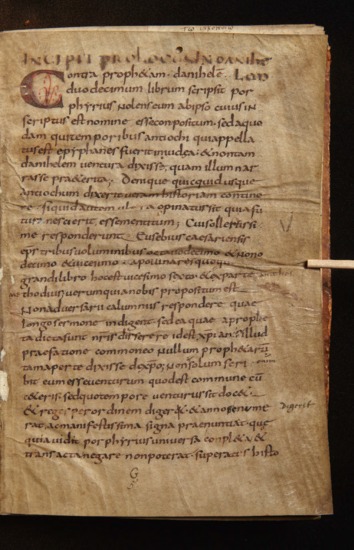 INCIPIT PROLOGUS IN DANIHELE
Contra prophetam danihelem
duodecimum librum scripsit por
phyrius nolens eum ab ipso cuius in
scriptus est nomine esse conpositum. sed a quo
dam qui temporibus antiochi qui appella
tus est epiphanes fuerit in iudęa. & non tam
danihelem uentura dixisse. quam illum nar
rasse praeterita; Denique quicquid usque
antiochum dixerit ueram historiam contine
re siquid autem ultra opinatus sit quia fu
tura nescierit esse mentitum; Cui sollertissi
me responderunt Eusebius caesariensis
eps tribus uoluminibus octauodecimo & nono
decimo & uicesimo. apollinaris quoque uno
grandi libro hoc est uicesimo sexto & ex parte
thodius uerum quia nobis propositum est
Non aduersarii calumniis respondere quae
longo sermone indigent sed ea quae a prophe
ta dicta sunt nris disserere id est xpianis illud
praefatione commoneo nullum prophetarū
tam aperte dixisse de xpo; Non solum scri
bit eum esse uenturum quod est commune cū
ceteris. sed quo tempore uenturus sit docet.
& reges per ordinem digerit & annos enume
rat. ac manifestissima signa praenuntiat. quę
quia uidit porphyrius uniuersa conpleta &
transacta negare non poterat. superatus histo
digerit